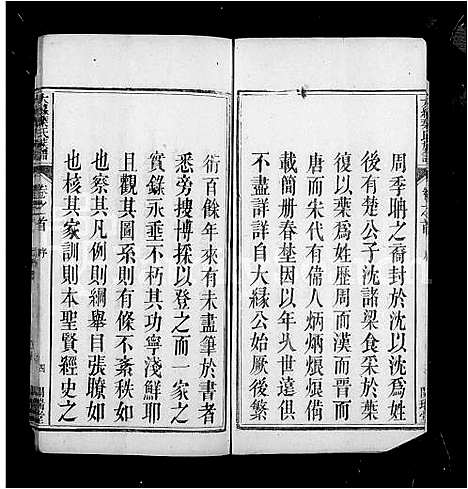 周季聃之裔封於沈以沈爲姓
後有楚公子沈諸梁食采於葉
復以葉爲姓歷周而漢而晉而
唐而宋代有偉人炳炳烺烺備
載簡册春埜因以年乆世遠俱
不盡詳詳自大緣公始厥後繁
衍百餘年來有未盡筆於書者
悉旁搜博採以登之而一家之
實錄永垂不朽其功寧淺鮮耶
且觀其圖系則有條不紊秩如
也察其凡例則綱舉目張瞭如
也核其家訓則本聖賢經史之
大緣葉氏族譜
卷之首
序
四